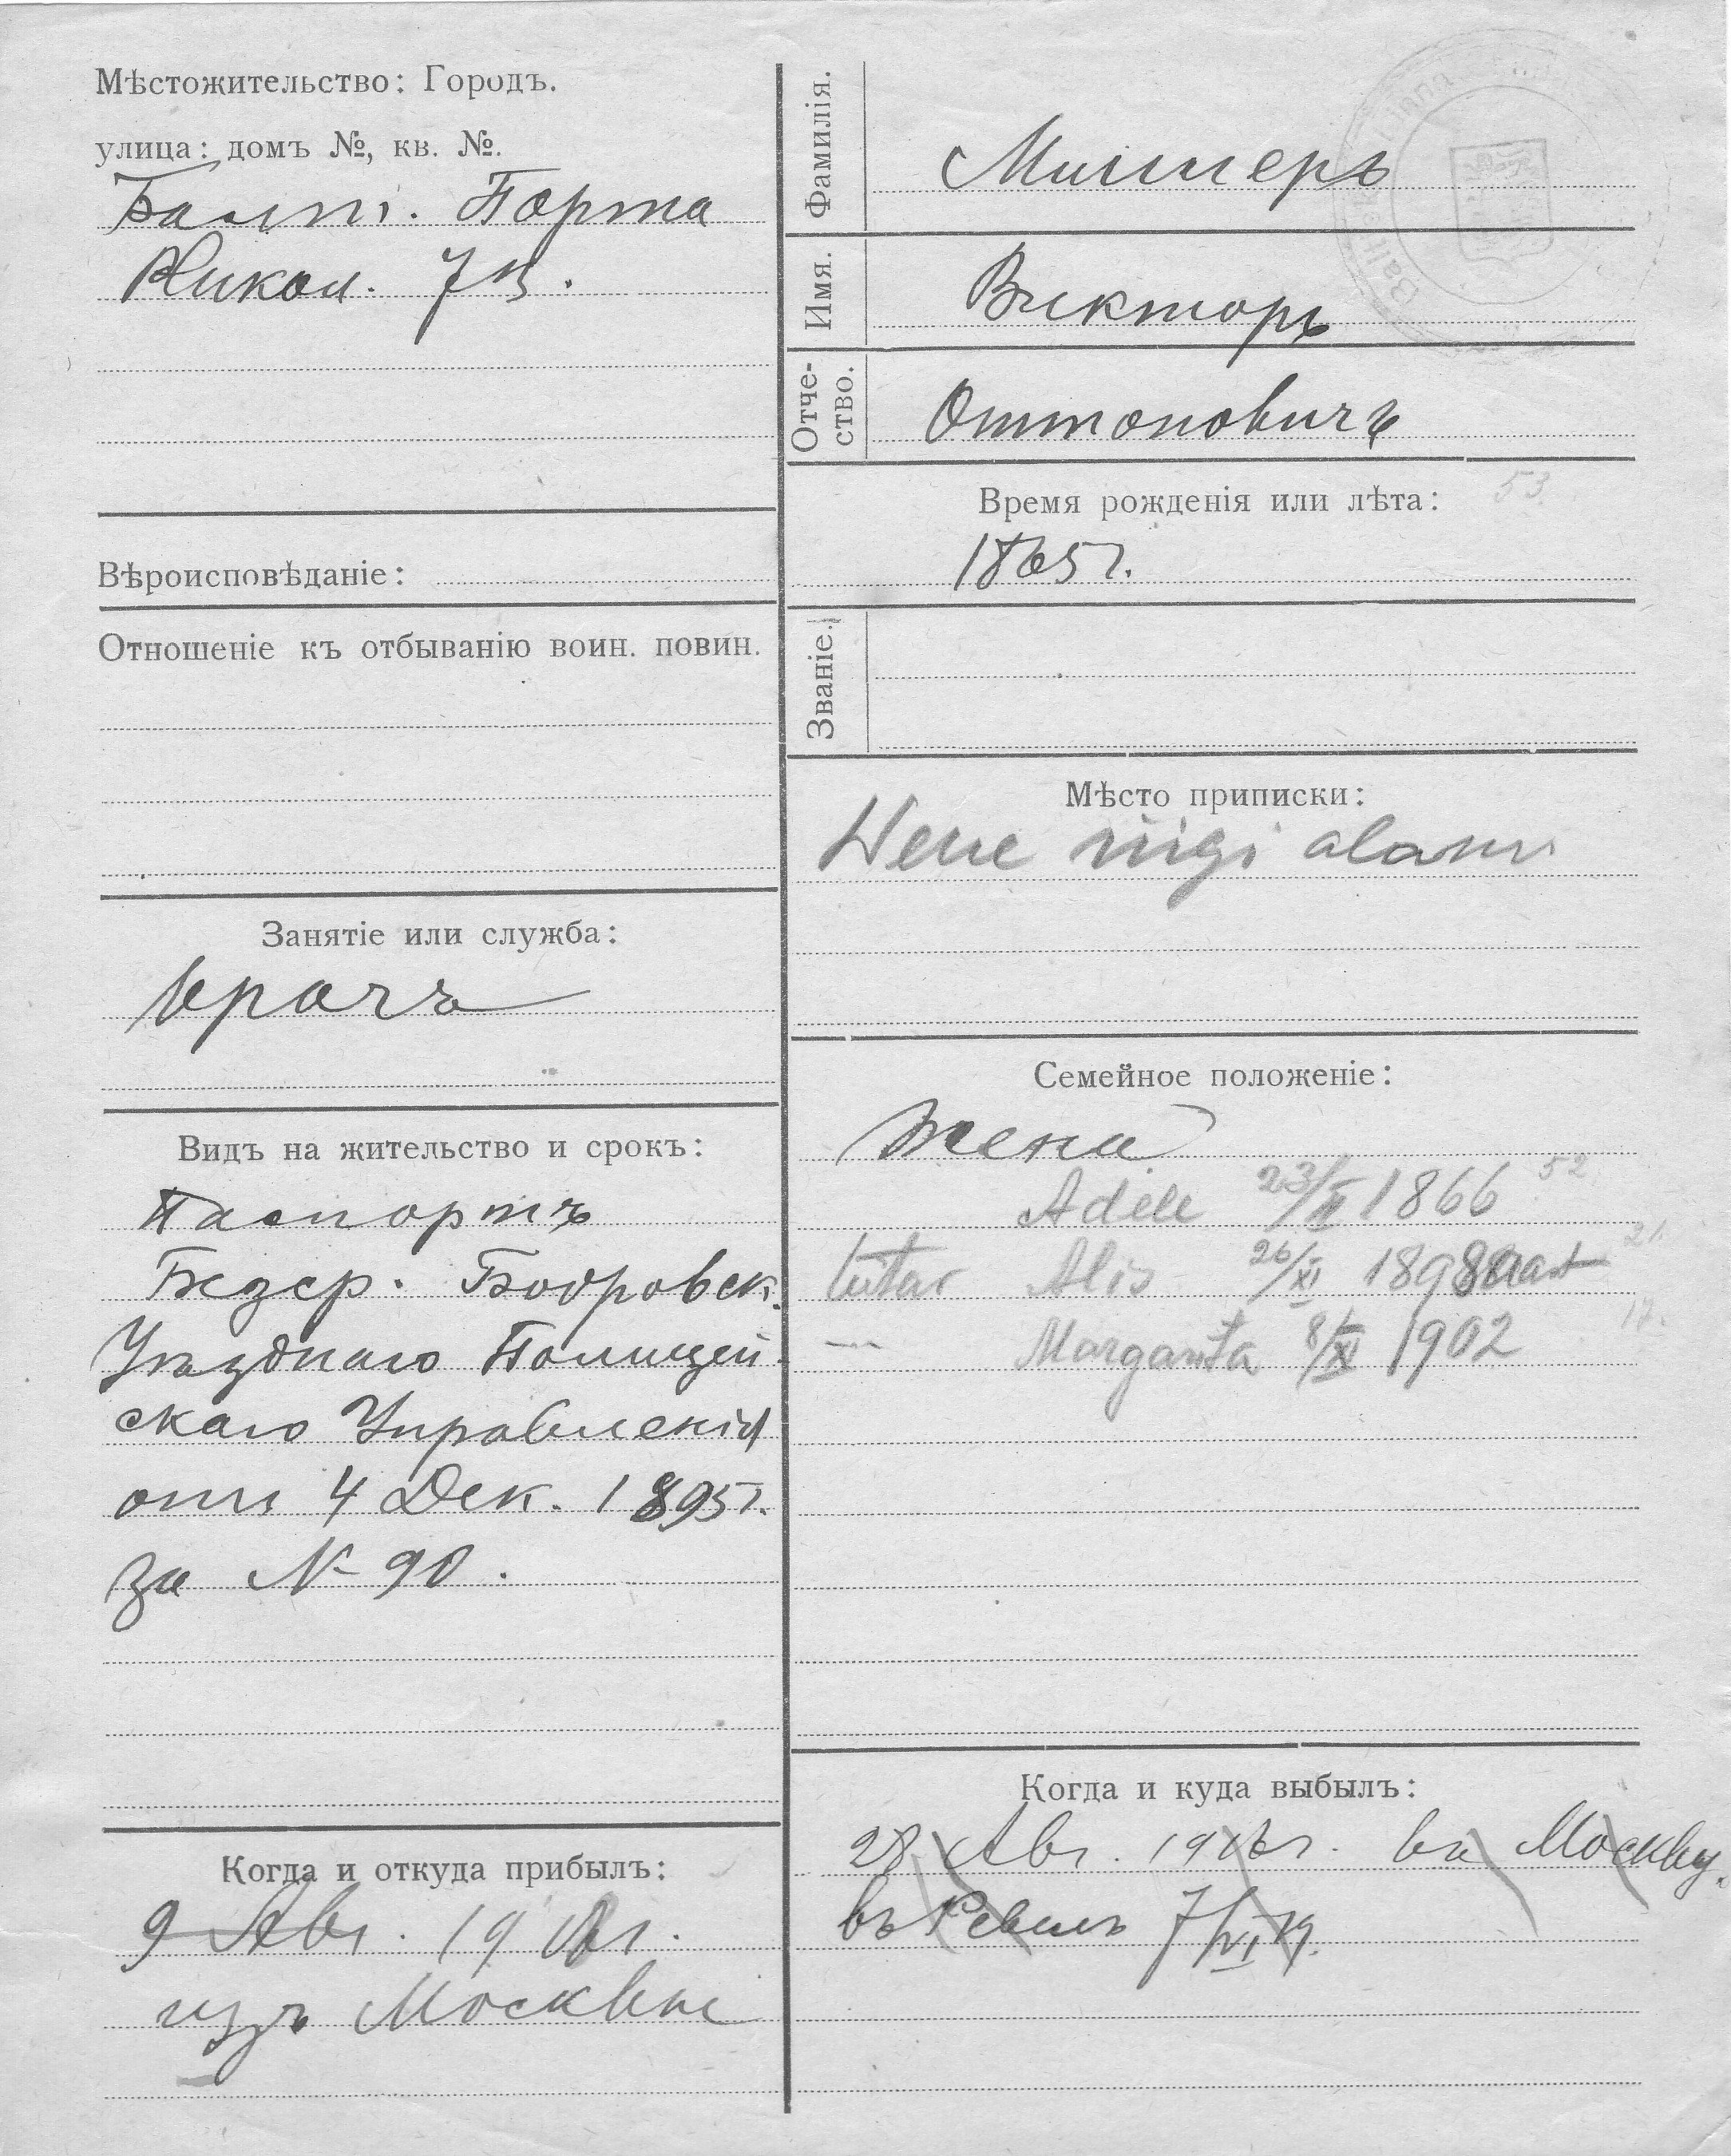 Мѣстожительство: Городъ.
улица: домъ №, кв. №.
Балт. Порта
Никол. 7В.
Вѣроисповѣданіе:
Отношеніе къ отбыванію воин. повин.
Занятіе или служба:
врачъ
Видъ на жительство и срокъ:
Паспортъ
Безср. Бобровск.
Уѣзднаго Полицей-
скаго Управленія
отъ 4 Дек. 1895 г.
за № 90.
Когда и откуда прибылъ:
9 Авг. 191 г.
изъ Москвы
Фамилія.
Миллеръ
Имя.
Викторъ
Отче-
ство.
Оттоновичъ
Время рожденія или лѣта:
53
1865 г.
Званіе.
Мѣсто приписки:
Wene riigi alam
Семейное положеніе:
Жена
Adele 23/II 1866 52
tütar Alis 26/XI 1898 aast 21.
— Margarita 8/XI 1902 17.
Когда и куда выбылъ:
28 Авг. 1918 г. въ Москву.
въ Ревель 7/VI 19.